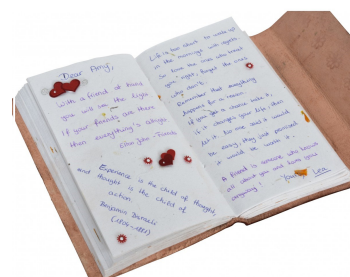 Dear Amy,
With a friend at hand
you will see the light
If your friends are there
then everything's alright
Elton John - Friends
Experience is the child of thought,
and thought is the child of
action.
Benjamin Disraeli
(1804-1881)
Life is too short to wake up
in the morning with regrets
So love the ones who treat
you right, forget the ones
who don't.
Remember that everything
happens for a reason.
If you get a chance take it,
if it changes your life, then
let it. No one said it would
be easy, they just promised
it would be worth it.
A friend is someone who knows
all about you and loves you
anyway!
Your Lea